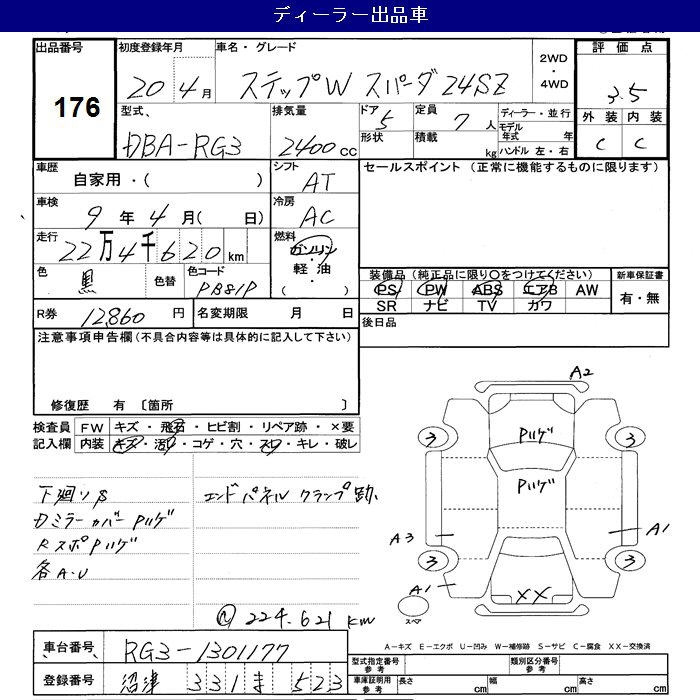 ディーラー出品車
出品番号 初度登録年月 車名・グレード 2WD・4WD 評価点
176 20年4月 ステップW スパーダ 24SZ 3.5
型式、 排気量 ドア 5 定員 7人 ディーラー・並行 外装 内装
DBA-RG3 2400cc 形状 積載 kg モデル年式 年 ハンドル 左・右 C C
車歴 自家用・( ) シフト AT セールスポイント (正常に機能するものに限ります)
車検 9年4月( 日) 冷房 AC
走行 22万4千620km 燃料 ガソリン・軽油 ( )
色 黒 色替 色コード PB81P 装備品 (純正品に限り○をつけてください) 新車保証書
PS PW ABS エアB AW 有・無
SR ナビ TV カワ
R券 12,860円 名変期限 月 日 後日品
注意事項申告欄(不具合内容等は具体的に記入して下さい)
修復歴 有 〔箇所 〕
検査員 FW キズ・飛石・ヒビ割・リペア跡・×要
記入欄 内装 キズ・汚れ・コゲ・穴・スレ・キレ・破レ
A2
3 3
Pハゲ
Pハゲ
下廻りS エンドパネル クランプ跡
Dミラーカバー Pハゲ
RスポPハゲ A3 A1
各A・U 3 3
A1 XX
スペア
224.621km
A－キズ E－エクボ U－凹み W－補修跡 S－サビ C－腐食 XX－交換済
車台番号 RG3-1301177 型式指定番号 参考 類別区分番号 参考
登録番号 沼津 331 ま 523 車庫証明用 参考 長さ cm 幅 cm 高さ cm